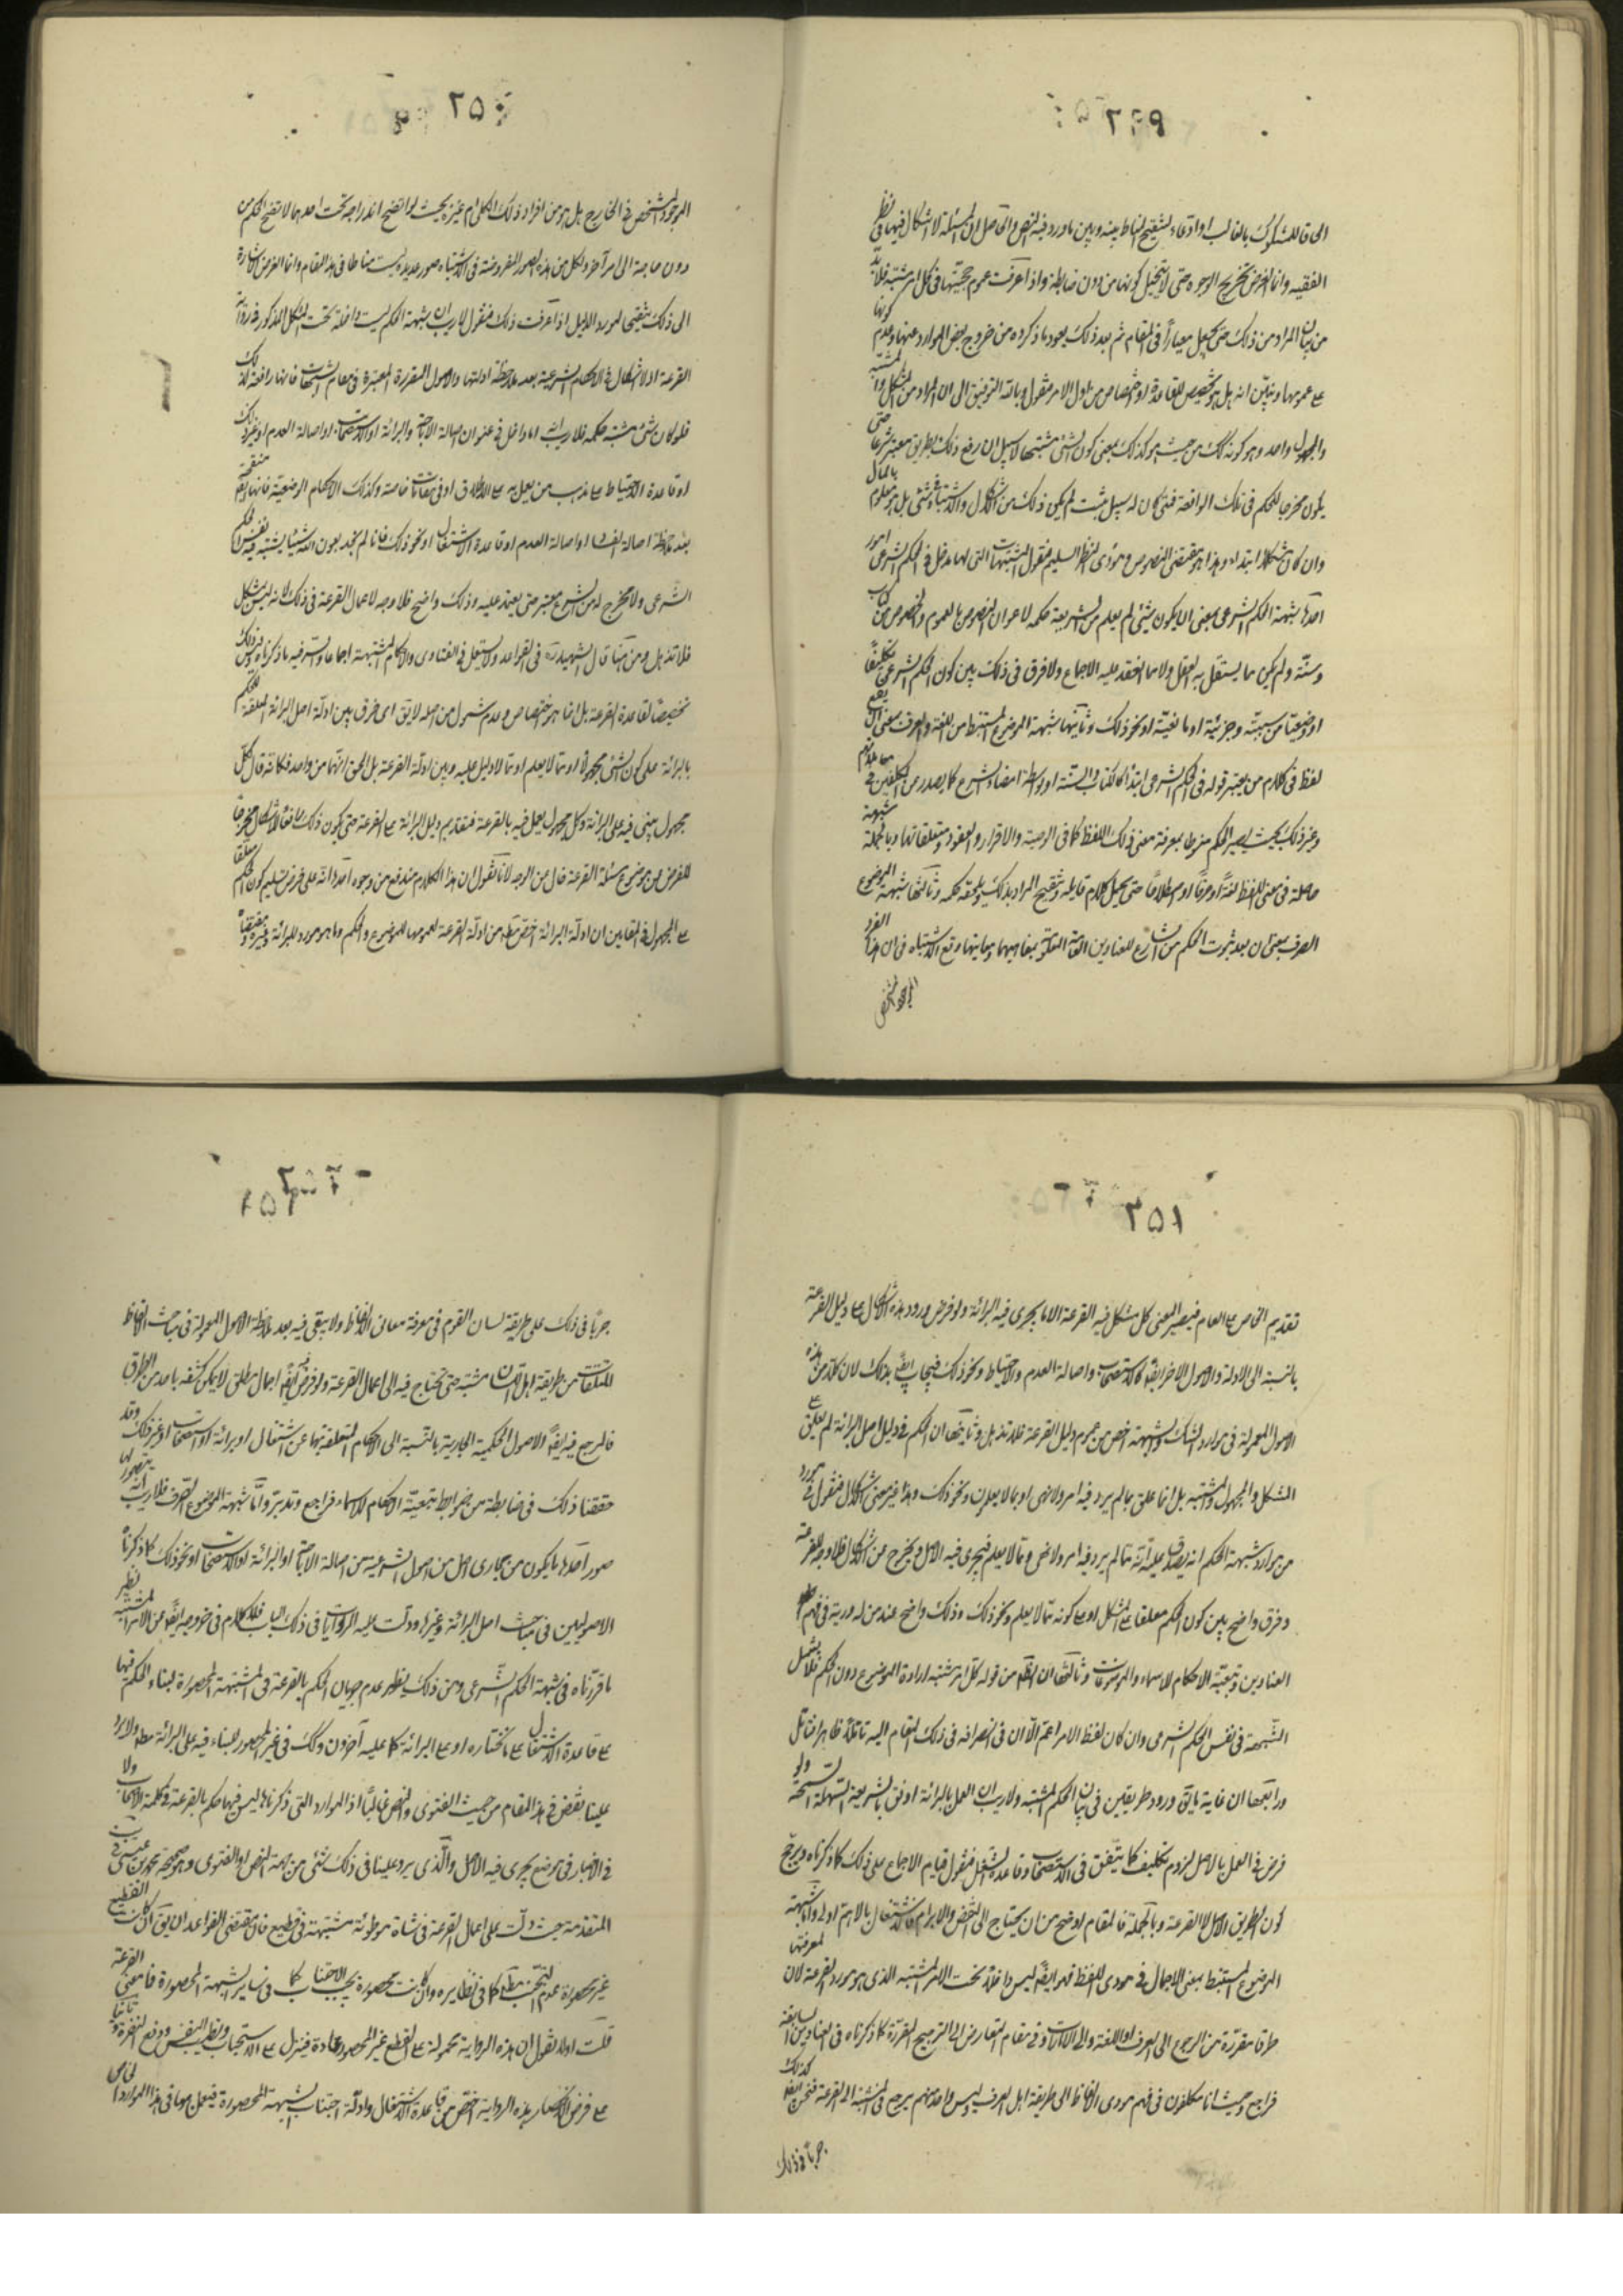 ٢٤٩
الحاقا للمشكوك بالغالب او ادعاء لتنقيح المناط بينه وبين ما ورد فيه النص والحاصل ان المسئلة لا اشكال فيها في نظر
الفقيه وانما الغرض تخريج الوجوه حتى لا يتخيل كونها من دون ضابطة واذا عرفت عموم حجيتها في كل امر مشتبه فلا بد
من بيان المراد من ذلك حتى يجعل معيارا في المقام ثم بعد ذلك يعود ما ذكروه من خروج بعض الموارد عنها وعدم كونها
على عمومها ويتبين انه هل هو تخصيص للقاعدة او اختصاص من اول الامر فنقول وبالله التوفيق ان المراد من المشكل والمشتبه
والمجهول واحد وهو كونه كك من حيث هو كذلك بمعنى كون الشئ مشتبها لا سبيل الى رفع ذلك بطريق معتبر شرعا حتى
يكون مخرجا للحكم في تلك الواقعة فمتى كان له سبيل مثبت لم يكن ذلك من الاشكال والاشتباه في شئ بل هو معلوم بالمآل
وان كان مشكلا ابتداء وهذا هو مقتضى النصوص ومؤدى النظر السليم فنقول المشتبهات التي لها مدخل في الحكم الشرعي امور
احدها شبهة الحكم الشرعي بمعنى ان يكون شئ لم يعلم من الشريعة حكمه لاعواز النصوص بالعموم والخصوص من كتاب
وسنة ولم يكن مما يستقل به العقل ولا مما انعقد عليه الاجماع ولا فرق في ذلك بين كون الحكم الشرعي تكليفيا
او وضعيا من سببية وجزئية او مانعية او نحو ذلك وثانيها شبهة الموضوع المستنبط من اللغة والعرف بمعنى ان يقع
لفظ في كلام من يعتبر قوله في الحكم الشرعي ابتداء كالكتاب والسنة او بواسطة امضاء الشرع كما يصدر من المكلفين في معاملاتهم
وغير ذلك بحيث يصير الحكم منوطا بمعرفة معنى ذلك اللفظ كما في الوصية والاقرار والعقود ومتعلقاتها وبالجملة شبهة
حاصلة في معنى اللفظ لغة او عرفا او اصطلاحا حتى يحمل كلام قايله وتنقيح المراد بذلك ويلحقه حكمه وثالثها شبهة الموضوع
الصرف بمعنى ان بعد ثبوت الحكم من الشارع للعناوين العامة المعلومة بمفاهيمها ومهايتها وقع الاشتباه في ان هذا الفرد
الموجود المشخص
٢٥٠
الموجود المشخص في الخارج هل هو من افراد ذلك الكلي ام غيره بحيث لو اتضح اندراجه تحت احدهما لاتضح الحكم من
دون حاجة الى امر آخر ولكل من هذه الصور المفروضة في الاشتباه صور عديدة ليست مناطا في هذا المقام وانما الغرض الاشارة
الى ذلك تنقيحا لمورد الدليل اذا عرفت ذلك فنقول لا ريب ان شبهة الحكم ليست داخلة تحت المشكل المذكور في رواية
القرعة اذ لا اشكال في الاحكام الشرعية بعد ملاحظة ادلتها والاصول المقررة المعتبرة في مقام الشبهات فانها رافعة لذلك
فلو كان شئ مشتبه حكمه فلا ريب انه اما داخل في عنوان اصالة الاباحة والبرائة او الاستصحاب او اصالة العدم او غير ذلك
او قاعدة الاحتياط على مذهب من يعمل به على الاطلاق او في مقامات خاصة وكذلك الاحكام الوضعية فانها ايضا منقحة
بعد ملاحظة اصالة الفساد او اصالة العدم او قاعدة الاشتغال او نحو ذلك فانا لم نجد بعون الله شيئا يشتبه فيه نفس الحكم
الشرعي ولا مخرج له من الشرع معتبر حتى يعتمد عليه وذلك واضح فلا وجه لاعمال القرعة في ذلك لانه ليس بمشكل
فلا تذهل ومن هنا قال الشهيد ره في القواعد ولا تستعمل في الفتاوى والاحكام المشتبهة اجماعا والسر فيه ما ذكرنا وليس ذلك
تخصيصا لقاعدة القرعة بل انما هو اختصاص وعدم شمول من اصله لا يق اي فرق بين ادلة اصل البرائة المعلقة للحكم
بالبرائة على كون الشئ مجهولا او مما لا يعلم او مما لا دليل عليه وبين ادلة القرعة بل الحق انهما من واحد فكانه قال كل
مجهول يبنى فيه على البرائة وكل مجهول يعمل فيه بالقرعة فتقديم دليل البرائة على القرعة حتى يكون ذلك رافعا للاشكال مخرجا
للفرض عن موضوع مسئلة القرعة خال من الوجه لانا نقول ان هذا الكلام مندفع من وجوه احدها انه على فرض تسليم كون الحكم معلقا
على المجهول في المقامين ان ادلة البرائة اخص مطلقا من ادلة القرعة لعمومها للموضوع والحكم وما هو مورد للبرائة وغيره ومقتضى
٢٥١
تقديم الخاص على العام فيصير المعنى كل مشكل فيه القرعة الا ما يجري فيه البرائة ولو فرض ورود هذه الاشكال على دليل القرعة
بالنسبة الى الادلة والاصول الاخر ايضا كالاستصحاب واصالة العدم والاحتياط ونحو ذلك فيجاب ايضا بذلك لان كلا من هذه
الاصول المعمولة في موارد الشك والشبهة اخص من عموم دليل القرعة فلا تذهل وثانيها ان الحكم في دليل اصل البرائة لم يعلق على
المشكل والمجهول والمشتبه بل انما علق بما لم يرد فيه امر ولا نهي او بما لا يعلم ونحو ذلك وهذا غير معنى الاشكال فنقول في مورد
من موارد شبهة الحكم انه يصدق عليه انه مما لم يرد فيه امر ولا نهى ومما لا يعلم فيجري فيه الاصل ويخرج عن الاشكال فلا وجه للقرعة
وفرق واضح بين كون الحكم معلقا على المشكل او على كونه مما لا يعلم ونحو ذلك وذلك واضح عند من له دربة في فهم
العناوين وتبعية الاحكام للاسماء والموضوعات وثالثها ان الظاهر من قوله كل امر مشتبه ارادة الموضوع دون الحكم فلا يشمل
الشبهة في نفس الحكم الشرعي وان كان لفظ الامر اعم الا ان في انصرافه في ذلك المقام اليه تاملا ظاهرا فتامل
ورابعها ان غاية ما يق ورود طريقين في بيان الحكم المشتبه ولا ريب ان العمل بالبرائة اوفق بالشريعة السهلة السمحة ولو
فرض في العمل بالاصل لزوم تكليف كما يتفق في الاستصحاب وقاعدة الشغل فنقول قيام الاجماع على ذلك كما ذكرناه ويرجح
كون الطريق الاصل لا القرعة وبالجملة فالمقام اوضح من ان يحتاج الى النقض والابرام فالاشتغال بالاهم اولى واما شبهة
الموضوع المستنبط بمعنى الاجمال في مؤدى اللفظ فهو ايضا ليس داخلا تحت الامر المشتبه الذي هو مورد القرعة لان لمعرفتها
طرقا مقررة من الرجوع الى العرف او اللغة والى الامارات وفي مقام التعارض الى الترجيح المقررة كما ذكرناه في العناوين السابقة
فراجع وحيث انا مكلفون في فهم مؤدى الالفاظ الى طريقة اهل العرف وليس واحد منهم يرجع في المشتبه الى القرعة فنحن ايضا كذلك
جريا في ذلك
٢٥٢
جريا في ذلك على طريقة لسان القوم في معرفة معاني الالفاظ ولا يبقى فيه بعد ملاحظة الاصول المعمولة في مباحث الالفاظ
المتلقاة من طريقة اهل اللسان مشتبه حتى يحتاج فيه الى اعمال القرعة ولو فرض فيه ايضا اجمال مطلق لا يمكن كشفه باحد من الطرق
فالمرجع فيه ايضا الاصول الحكمية الجارية بالنسبة الى الاحكام المتعلقة بها من اشتغال او برائة او استصحاب او غير ذلك وقد
حققنا ذلك في ضابطة من ضوابط تبعية الاحكام للاسماء فراجع وتدبر واما شبهة الموضوع الصرف فلا ريب انه يتصور لها
صور احدها ما يكون من مجاري اصل من اصول الشرعية من اصالة الاباحة او البرائة او الاستصحاب او نحو ذلك كما ذكرناه
الاصوليين في مباحث اصل البرائة وغيرها ودلت عليه الروايات في ذلك الباب فلا كلام في خروجه ايضا عن الامر المشتبه نظير
ما قررناه في شبهة الحكم الشرعي ومن ذلك يظهر عدم جريان الحكم بالقرعة في المشتبهة المحصورة لبناء الحكم فيها
على قاعدة الاشتغال على ما نختاره او على البرائة كما عليه آخرون وكك في غير المحصور للبناء فيه على البرائة مطلقا ولا يرد
علينا نقض في هذا المقام من حيث الفتوى والنص غالبا اذ الموارد التي ذكرناها ليس فيها حكم بالقرعة في كلمة الاصحاب ولا
في الاخبار في موضع يجري فيه الاصل والذي يرد علينا في ذلك شئ من جهة النص او الفتوى وهو صحيحة محمد بن عيسى
المتقدمة حيث دلت على اعمال القرعة في شاة موطوئة مشتبهة في قطيع فان مقتضى القواعد ان يق ان كانت القطيع
غير محصورة عدم التجنب مطلقا كما في نظايره وان كانت محصورة يجب الاجتناب كما في ساير الشبهة المحصورة فما معنى القرعة
قلت اولا نقول ان هذه الرواية محمولة على القطع غير المحصور عادة فينزل على الاستحباب وتطييب النفس ودفع النفرة وثانيا
على فرض الانحصار هذه الرواية اخص من قاعدة الاشتغال وادلة اجتناب الشبهة المحصورة فيعمل بها في هذا المورد الخاص